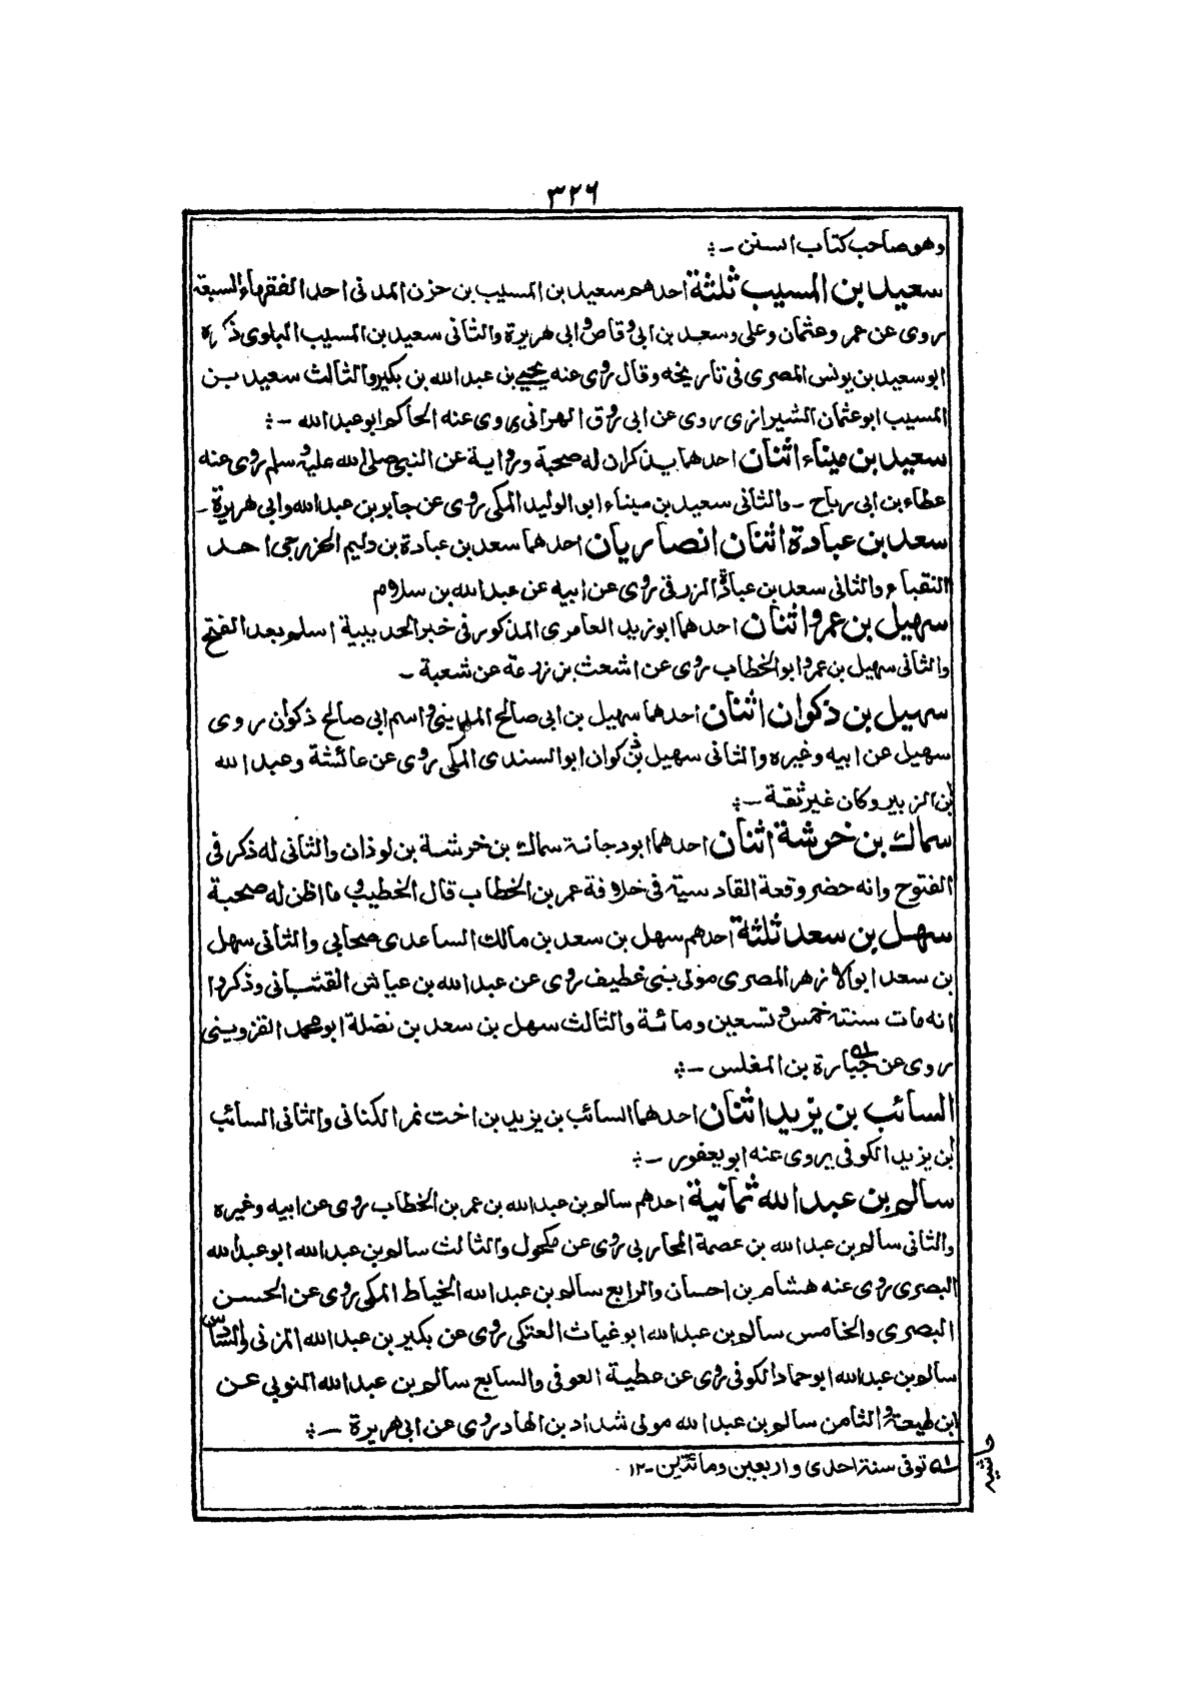 ٣٢٦
وهو صاحب كتاب السنن -:
سعيد بن المسيب ثلثة احدهم سعيد بن المسيب بن حزن المدنى احد الفقهاء السبعة
روى عن عمر وعثمان وعلى وسعد بن ابى وقاص وابى هريرة والثانى سعيد بن المسيب البلوى ذكره
ابو سعيد بن يونس المصرى فى تاريخه وقال روى عنه يحيى بن عبد الله بن بكير والثالث سعيد بن
المسيب ابو عثمان الشيرازى روى عن ابى روق الهرانى روى عنه الحاكم ابو عبد الله -:
سعيد بن ميناء اثنان احدهما يذكر ان له صحبة ورواية عن النبى صلى الله عليه وسلم روى عنه
عطاء بن ابى رباح - والثانى سعيد بن ميناء ابو الوليد المكى روى عن جابر بن عبد الله وابى هريرة -
سعد بن عبادة اثنان انصاريان احدهما سعد بن عبادة بن دليم الخزرجى احد
النقباء والثانى سعد بن عبادة الزرقى روى عن ابيه عن عبد الله بن سلام
سهيل بن عمرو اثنان احدهما ابو يزيد العامرى المذكور فى خبر الحديبية اسلم بعد الفتح
والثانى سهيل بن عمرو ابو الخطاب روى عن اشعث بن زرعة عن شعبة -
سهيل بن ذكوان اثنان احدهما سهيل بن ابى صالح المدينى واسم ابى صالح ذكوان روى
سهيل عن ابيه وغيره والثانى سهيل بن ذكوان ابو السندى المكى روى عن عائشة وعبد الله
بن الزبير وكان غير ثقة -:
سماك بن خرشة اثنان احدهما ابو دجانة سماك بن خرشة بن لوذان والثانى له ذكر فى
الفتوح وانه حضر وقعة القادسية فى خلافة عمر بن الخطاب قال الخطيب وما اظن له صحبة
سهل بن سعد ثلثة احدهم سهل بن سعد بن مالك الساعدى صحابى والثانى سهل
بن سعد ابو الازهر المصرى مولى بنى غطيف روى عن عبد الله بن عياش القتبانى وذكروا
انه مات سنة خمس وتسعين ومائة والثالث سهل بن سعد بن نضلة ابو محمد القزوينى
روى عن جبارة بن المغلس -:
السائب بن يزيد اثنان احدهما السائب بن يزيد بن اخت نمر الكنانى والثانى السائب
بن يزيد الكوفى يروى عنه ابو يعفور -:
سالم بن عبد الله ثمانية احدهم سالم بن عبد الله بن عمر بن الخطاب روى عن ابيه وغيره
والثانى سالم بن عبد الله بن عصمة المحاربى روى عن مكحول والثالث سالم بن عبد الله ابو عبد الله
البصرى روى عنه هشام بن احسان والرابع سالم بن عبد الله الخياط المكى روى عن الحسن
البصرى والخامس سالم بن عبد الله ابو غياث العتكى روى عن بكير بن عبد الله المزنى والسادس
سالم بن عبد الله ابو حماد الكوفى روى عن عطية العوفى والسابع سالم بن عبد الله النوبى عن
ابن لهيعة والثامن سالم بن عبد الله مولى شداد بن الهاد روى عن ابى هريرة -:
حاشيه
له توفى سنة احدى واربعين ومائتين - ١٢